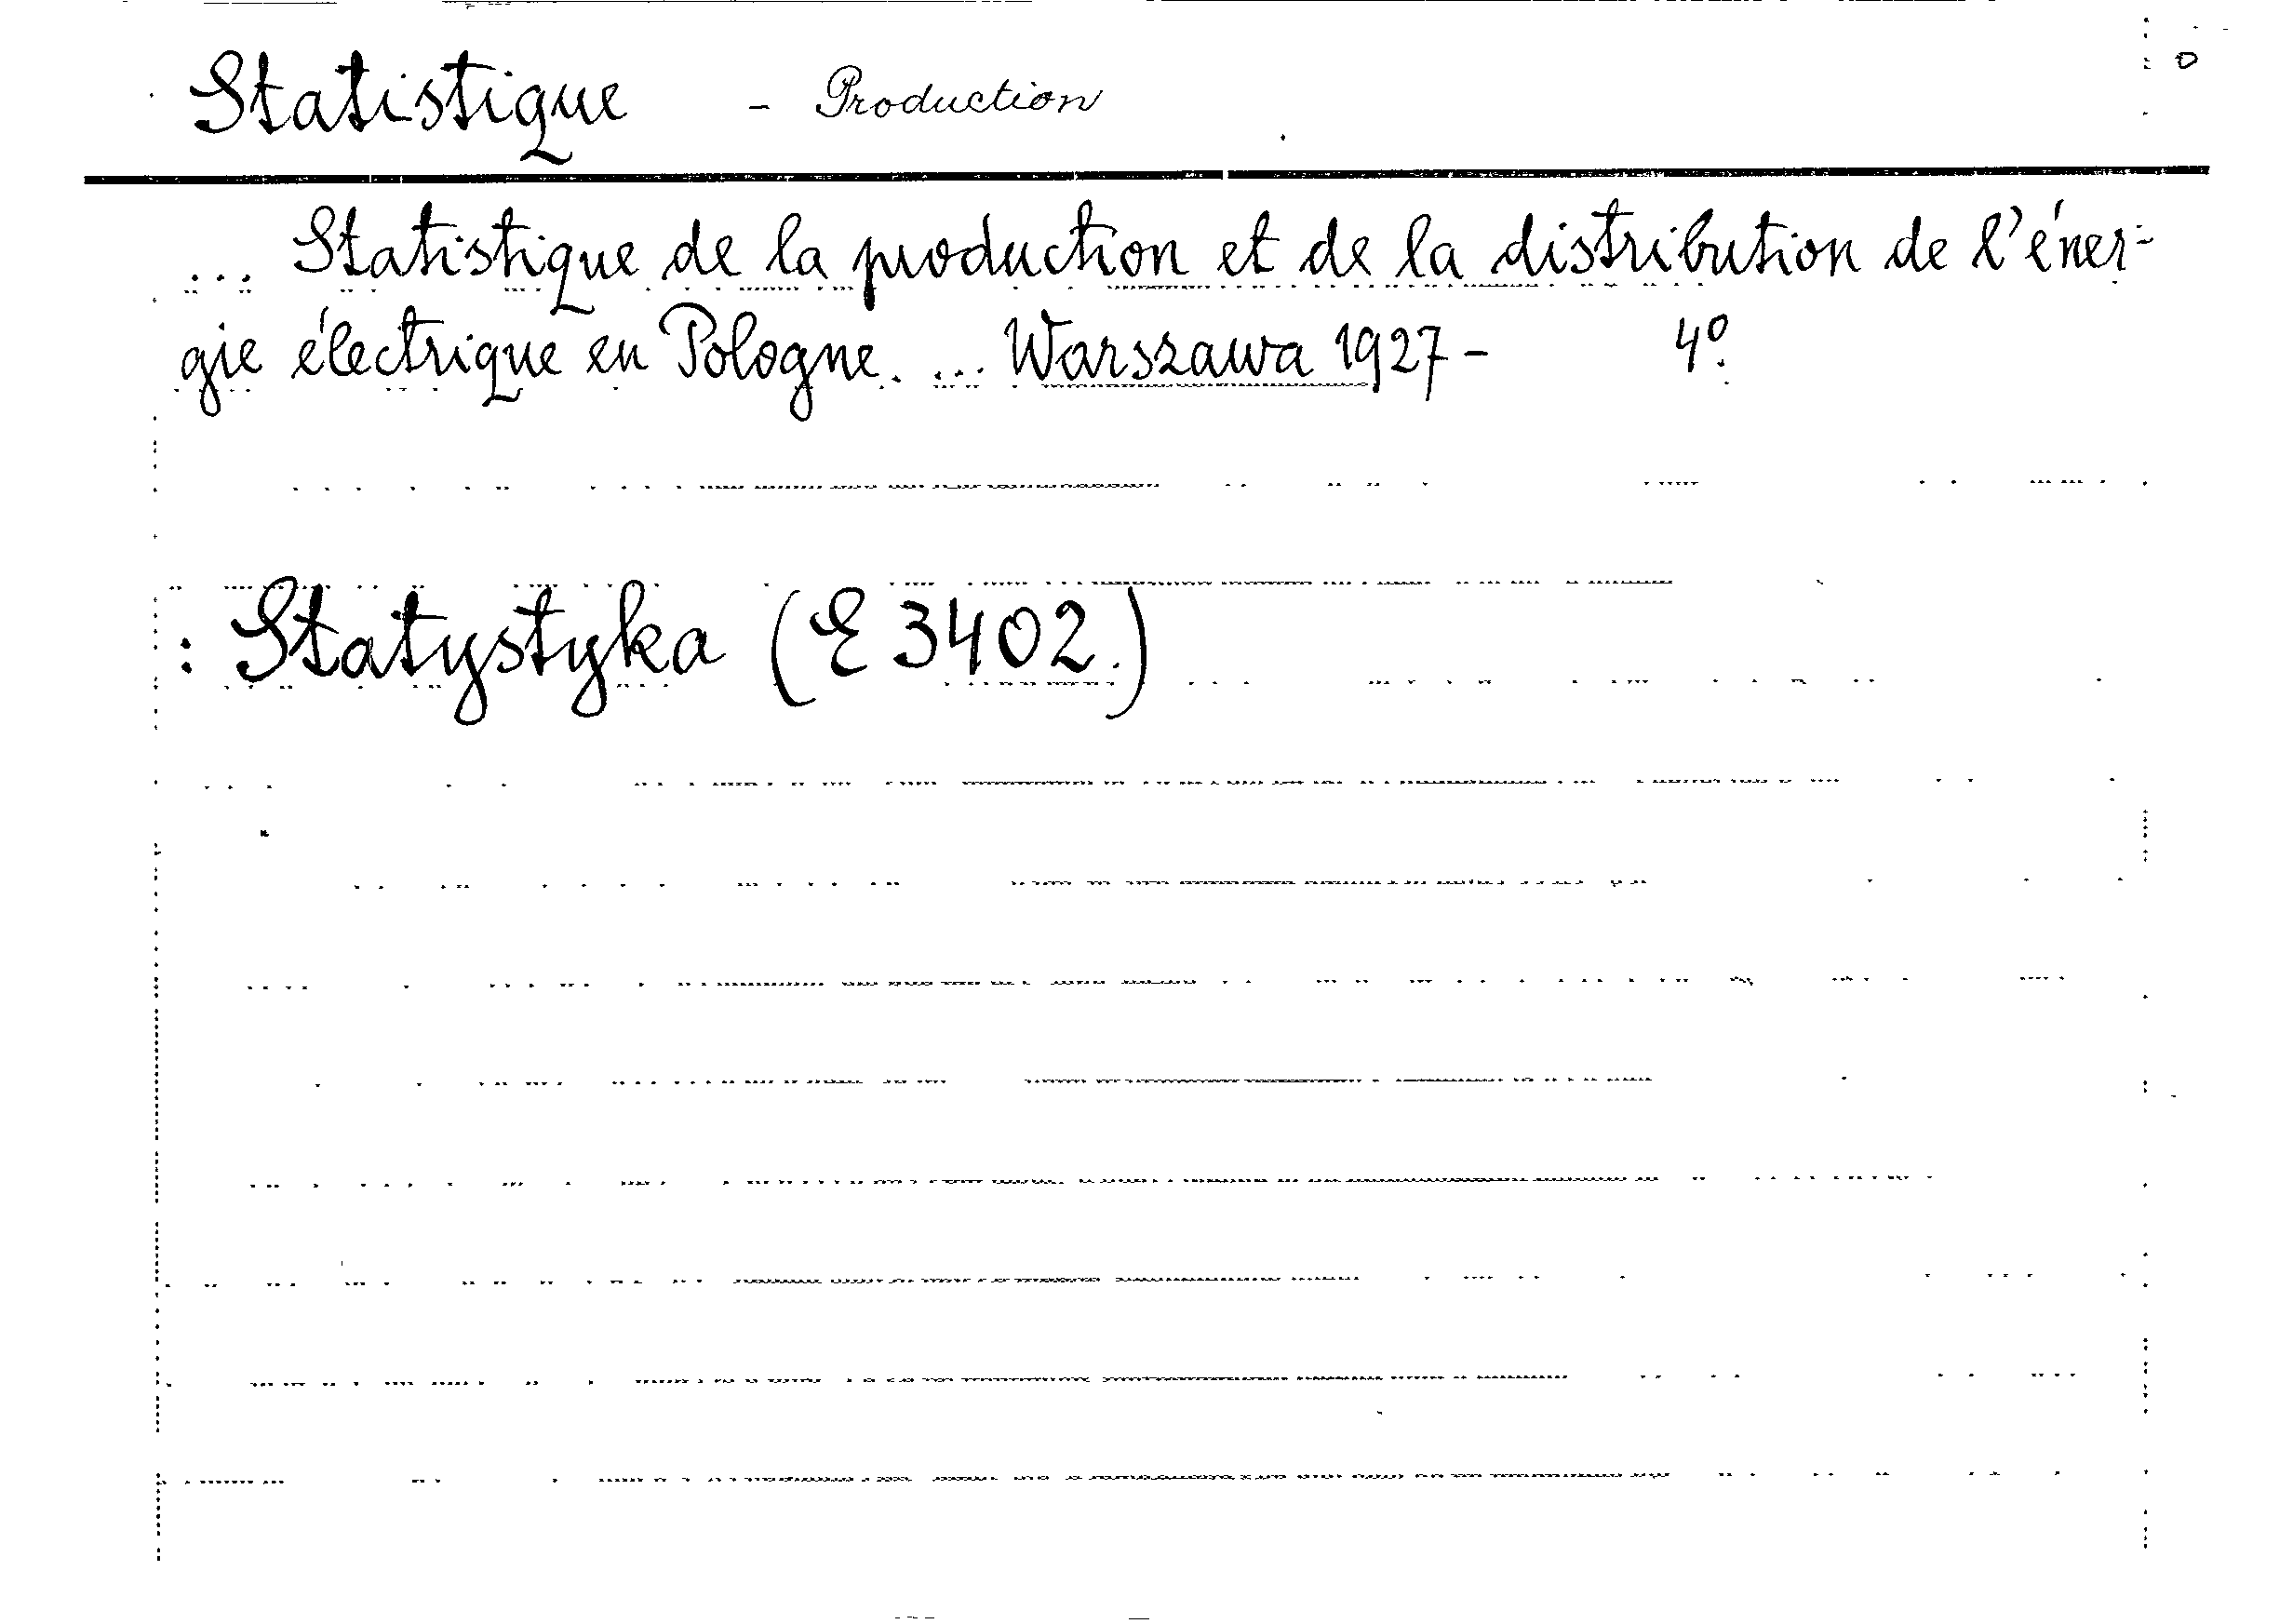 Statistique - Production
... Statistique de la production et de la distribution de l'éner-
gie électrique en Pologne. ... Warszawa 1927- 4º.
: Statystyka (E 3402.)